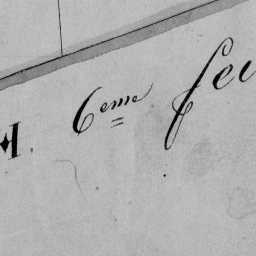 H. 6eme feu